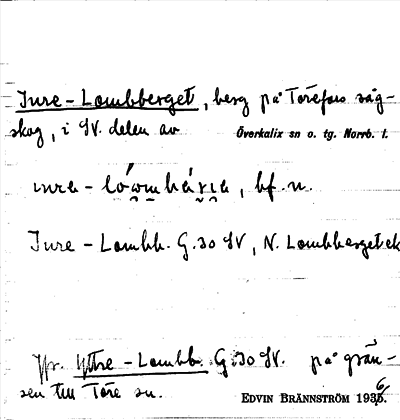 Inre-Lombberget, berg på Törefors såg-
skog, i SV. delen av Överkalix sn o. tg. Norrb. l.
bf. n.
Inre-Lombb. G.30 SV, N. Lombberget ek
Jfr. Yttre-Lombb. G.30 SV. på grän-
sen till Töre sn.
EDVIN BRÄNNSTRÖM 1936.